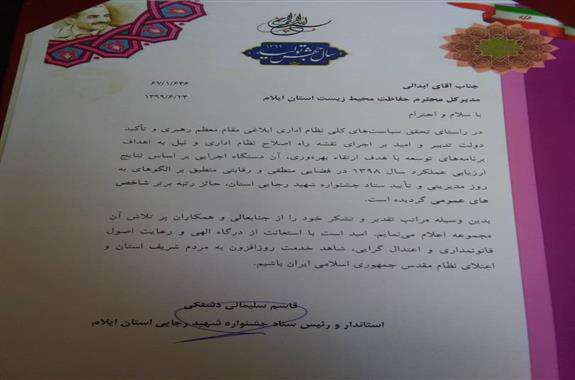 بسم الله الرحمن الرحیم
سال جهش تولید
۱۳۹۹
۶۷/۱/۶۳۶
۱۳۹۹/۶/۲۳
جناب آقای ابدالی
مدیرکل محترم حفاظت محیط زیست استان ایلام
با سلام و احترام
در راستای تحقق سیاست‌های کلی نظام اداری ابلاغی مقام معظم رهبری و تأکید
دولت تدبیر و امید بر اجرای نقشه راه اصلاح نظام اداری و نیل به اهداف
برنامه‌های توسعه با هدف ارتقاء بهره‌وری، آن دستگاه اجرایی بر اساس نتایج
ارزیابی عملکرد سال ۱۳۹۸ در فضایی منطقی و رقابتی منطبق بر الگوهای به
روز مدیریتی و تأیید ستاد جشنواره شهید رجایی استان، حائز رتبه برتر شاخص
های عمومی گردیده است.
بدین وسیله مراتب تقدیر و تشکر خود را از جنابعالی و همکاران پر تلاش آن
مجموعه اعلام می‌نمایم. امید است با استعانت از درگاه الهی و رعایت اصول
قانونمداری و اعتدال گرایی، شاهد خدمت روزافزون به مردم شریف استان و
اعتلای نظام مقدس جمهوری اسلامی ایران باشیم.
قاسم سلیمانی دشتکی
استاندار و رئیس ستاد جشنواره شهید رجایی استان ایلام